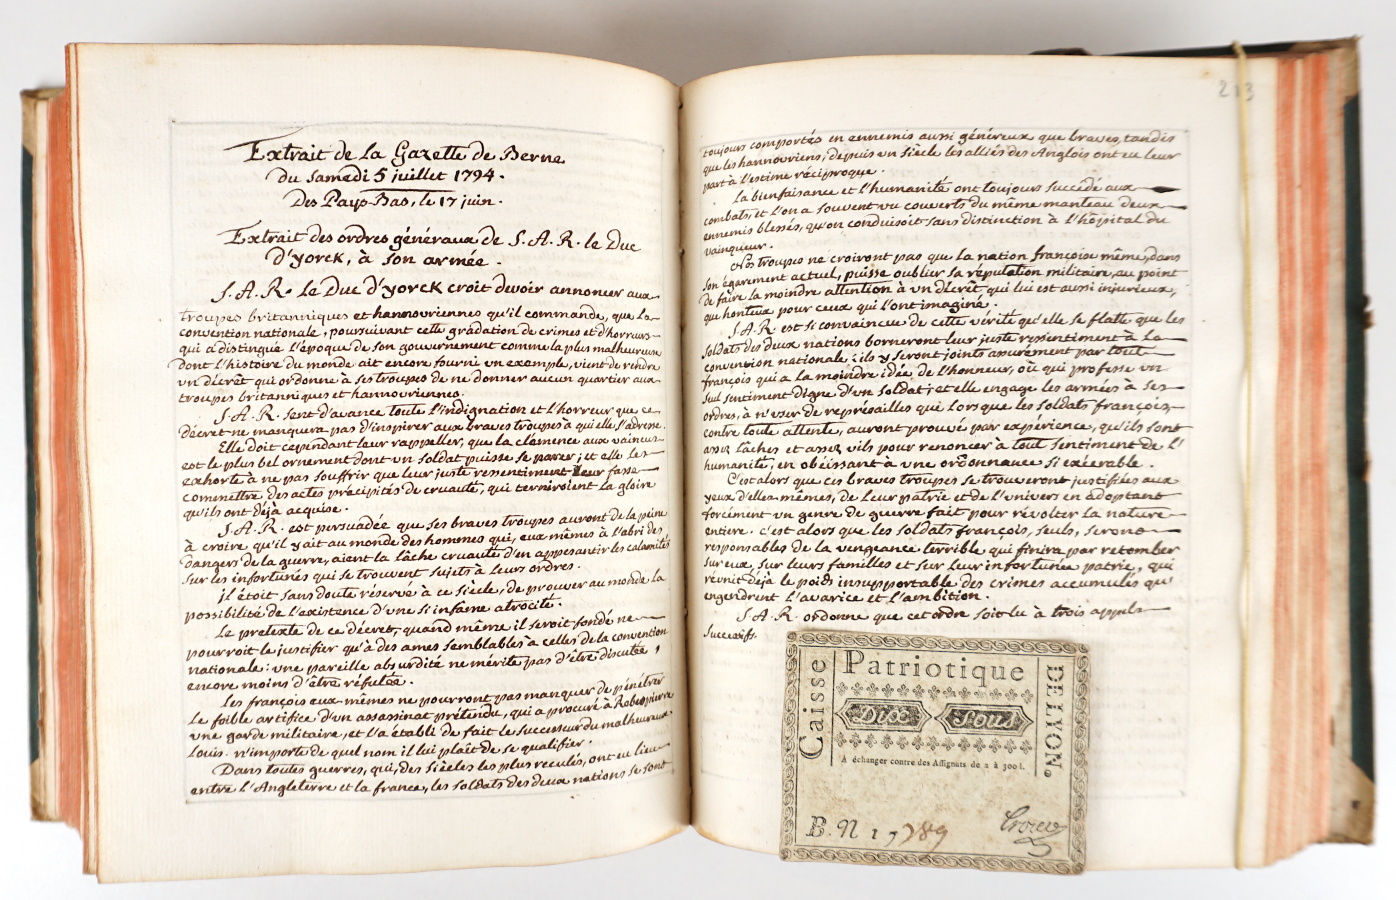 Extrait de la Gazette de Berne
du samedi 5 juillet 1794.
Des Pays-Bas, le 17 juin.
Extrait des ordres généraux de S. A. R. le Duc
d'yorck, à son armée.
S. A. R. le Duc d'yorck croit devoir annoncer aux
troupes britanniques et hannovriennes qu'il commande, que la
convention nationale, poursuivant cette gradation de crimes et d'horreurs
qui a distingué l'époque de son gouvernement comme la plus malheureuse
dont l'histoire du monde ait encore fourni un exemple, vient de rendre
un décrêt qui ordonne à ses troupes de ne donner aucun quartier aux
troupes britanniques et hannovriennes.
S. A. R. sent d'avance toute l'indignation et l'horreur que ce
décret ne manquera pas d'inspirer aux braves troupes à qui elle s'adresse.
Elle doit cependant leur rappeller, que la clémence aux vaincus
est le plus bel ornement dont un soldat puisse se parer; et elle les
exhorte à ne pas souffrir que leur juste ressentiment leur fasse
comméttre des actes précipités de cruauté, qui terniroient la gloire
qu'ils ont déjà acquise.
S. A. R. est persuadée que ses braves troupes auront de la peine
à croire qu'il y ait au monde des hommes qui, eux mêmes à l'abri des
dangers de la guerre, aient la lâche cruauté d'en appesantir les calamités
sur les infortunés qui se trouvent sujets à leurs ordres.
il étoit sans doute réservé à ce siècle, de prouver au monde la
possibilité de l'existence d'une si infâme atrocité.
Le pretexte de ce décret, quand même il seroit fondé ne
pourroit le justifier qu'à des ames semblables à celles de la convention
nationale: une pareille absurdité ne mérite pas d'être discutée,
encore moins d'être réfutée.
Les françois eux mêmes ne pourront pas manquer de pénétrer
le foible artifice d'un assassinat prétendu, qui a procuré à Robespierre
une garde militaire, et l'a établi de fait le successeur du malheureux
Louis. n'importe de quel nom il lui plaît de se qualifier.
Dans toutes guerres, qui, des siècles les plus reculés, ont eu lieu
entre l'Angleterre et la france, les soldats des deux nations se sont
213
toujours comportés en ennemis aussi généreux que braves, tandis
que les hannovriens, depuis un siècle les alliés des Anglois ont eu leur
part à l'estime réciproque.
La bienfaisance et l'humanité ont toujours succédé aux
combats, et l'on a souvent vu couverts du même manteau deux
ennemis blessés, qu'on conduisoit sans distinction à l'hôpital du
vainqueur.
Nos troupes ne croiront pas que la nation françoise même, dans
son égarement actuel, puisse oublier sa réputation militaire, au point
de faire la moindre attention à un décrêt, qui lui est aussi injurieux,
que honteux pour ceux qui l'ont imaginé.
S. A. R. est si convaincue de cette vérité qu'elle se flatte que les
soldats des deux nations borneront leur juste ressentiment à la
convention nationale; ils y seront joints assurément par tout
françois qui a la moindre idée de l'honneur, où qui professe un
seul sentiment digne d'un soldat; et elle engage les armées à ses
ordres, à n'user de représailles que lorsque les soldats françois,
contre toute attente, auront prouvé par expérience, qu'ils sont
assez lâches et assez vils pour renoncer à tout sentiment de l'
humanité, en obéissant à une ordonnance si exécrable.
C'est alors que ces braves troupes se trouveront justifiées aux
yeux d'elles mêmes, de leur patrie et de l'univers en adoptant
forcément un genre de guerre fait pour révolter la nature
entière. c'est alors que les soldats françois, seuls, seront
responsables de la vengeance terrible qui finira par retomber
sur eux, sur leurs familles et sur leur infortunée patrie, qui
réunit déjà le poids insupportable des crimes accumulés qu'
engendrent l'avarice et l'ambition.
S. A. R. ordonne que cet ordre soit lu à trois appels
successifs.
Caisse
Patriotique
DE LYON.
Dix Sous
A échanger contre des Assignats de 2 à 300 l.
B. N 17789